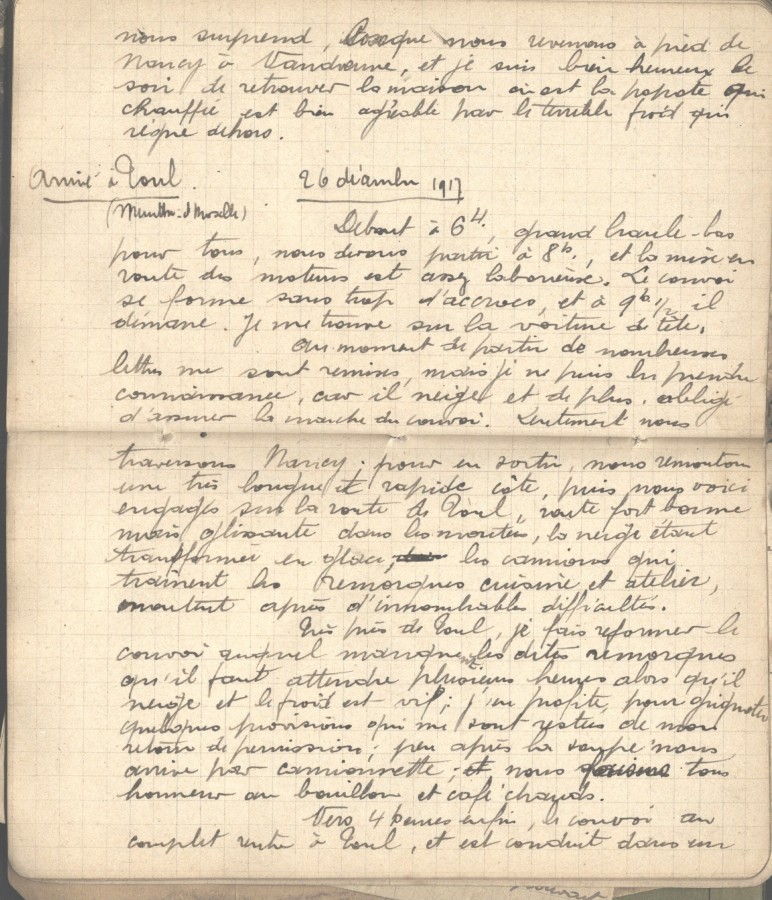 nous surprend, lorsque nous revenons à pied de
Nancy à Vandoeuvre, et je suis bien heureux le
soir de retrouver la maison où est la popote qui
chauffée est bien agréable par le terrible froid qui
règne dehors.
Arrivé à Toul. 26 décembre 1917
(Meurthe-et-Moselle)
Debout à 6H, grand branle-bas
pour tous, nous devons partir à 8h, et la mise en
route des moteurs est assez laborieuse. Le convoi
se forme sans trop d'accrocs, et à 9h 1/2 il
démarre. Je me trouve sur la voiture de tête.
Au moment de partir de nombreuses
lettres me sont remises, mais je ne puis en prendre
connaissance, car il neige et de plus, obligé
d'assurer la marche du convoi. Lentement nous
traversons Nancy : pour en sortir, nous remontons
une très longue et rapide côte, puis nous voici
engagés sur la route de Toul, route fort bonne
mais glissante dans les montées, la neige étant
transformée en glace, les camions qui
traînent les remorques cuisine et atelier,
montent après d'innombrables difficultés.
Très près de Toul, je fais reformer le
convoi auquel manquent les dites remorques
qu'il faut attendre plusieurs heures alors qu'il
neige et le froid est vif ; j'en profite, pour grignoter
quelques provisions qui me sont restées de mon
retour de permission ; peu après la soupe nous
arrive par camionnette ; et nous faisons tous
honneur au bouillon et café chauds.
Vers 4 heures enfin, le convoi au
complet rentre à Toul, et est conduit dans un